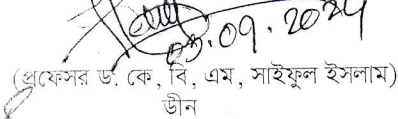 03.09.2024
(প্রফেসর ড. কে, বি, এম, সাইফুল ইসলাম)
ডীন